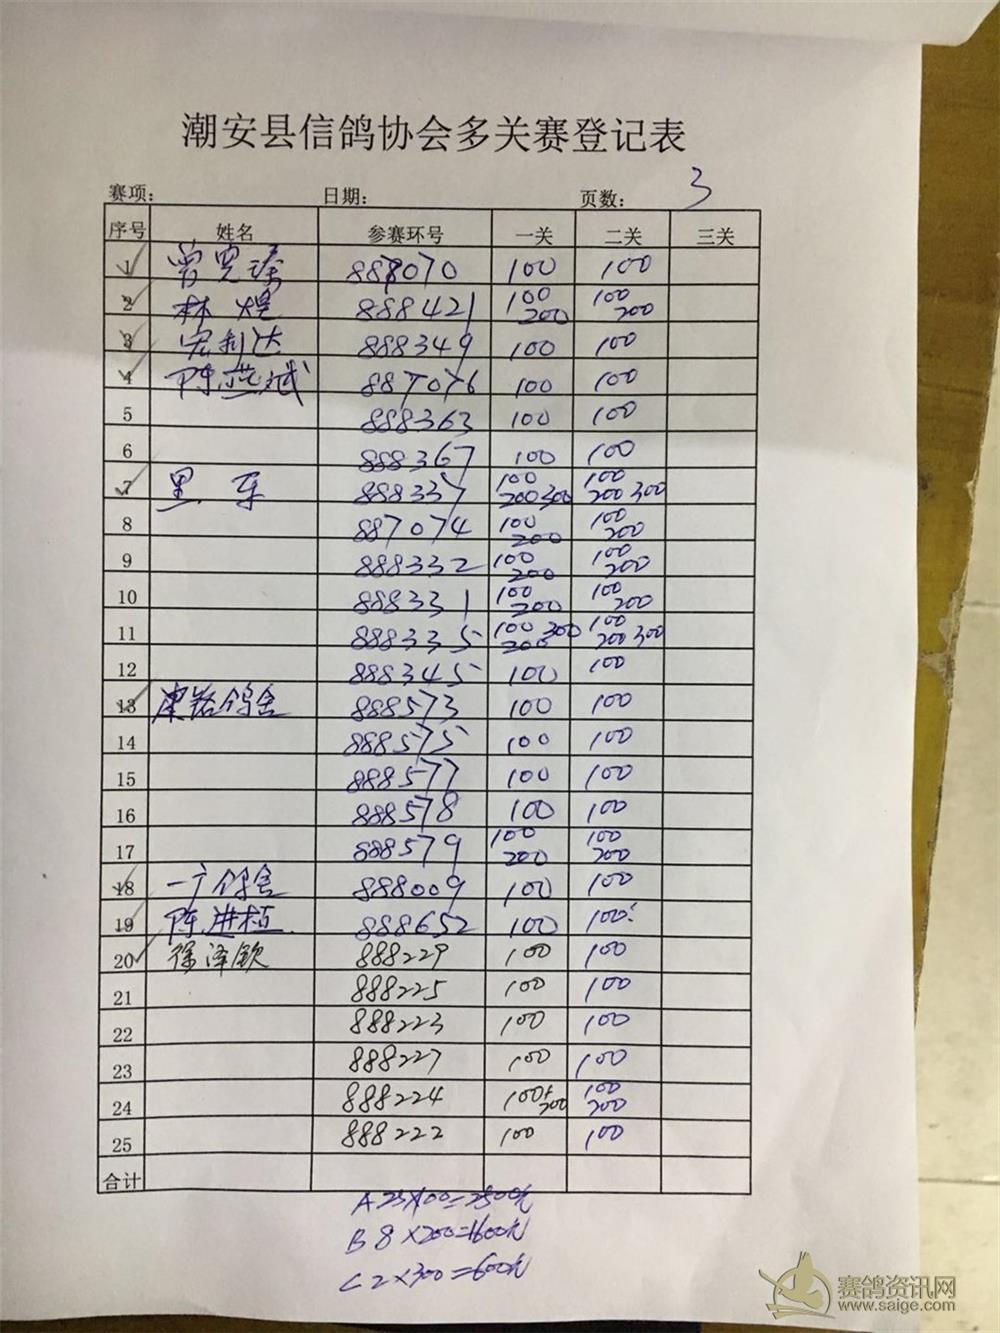 潮安县信鸽协会多关赛登记表
赛项： 日期： 页数： 3
序号 姓名 参赛环号 一关 二关 三关
1 888070 100 100
2 林煌 888421 100 200 100 200
3 宏利达 888349 100 100
4 陈燕斌 887076 100 100
5 888363 100 100
6 888367 100 100
7 黑车 888337 100 200 300 100 200 300
8 887074 100 200 100 200
9 888332 100 200 100 200
10 888331 100 200 100 200
11 888335 100 300 200 100 200 300
12 888345 100 100
13 鸽舍 888573 100 100
14 888575 100 100
15 888577 100 100
16 888578 100 100
17 888579 100 200 100 200
18 一广鸽舍 888009 100 100
19 陈进植 888652 100 100
20 徐泽钦 888229 100 100
21 888225 100 100
22 888223 100 100
23 888227 100 100
24 888224 100+200 100 200
25 888222 100 100
合计
A 25×100=2500元
B 8×200=1600元
C 2×300=600元
赛鸽资讯网
www.saige.com